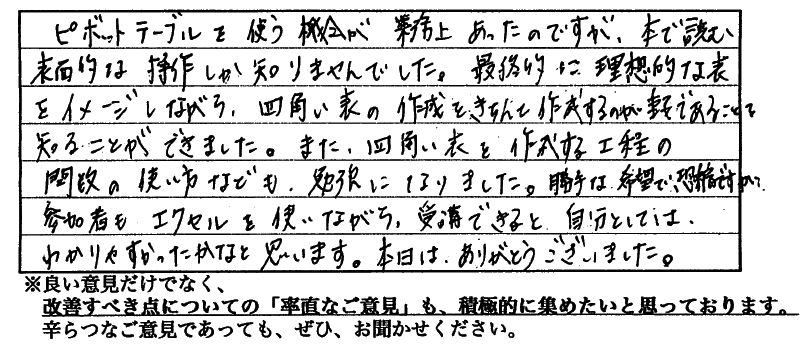 ピボットテーブルを使う機会が業務上あったのですが、本で読む
表面的な操作しか知りませんでした。最終的に理想的な表
をイメージしながら、四角い表の作成をきちんと作成するのが重要であることを
知ることができました。また、四角い表を作成する工程の
関数の使い方なども、勉強になりました。勝手な希望で、恐縮ですが、
参加者もエクセルを使いながら、受講できると、自分としては、
わかりやすかったかなと思います。本日は、ありがとうございました。
※良い意見だけでなく、
改善すべき点についての「率直なご意見」も、積極的に集めたいと思っております。
辛らつなご意見であっても、ぜひ、お聞かせください。